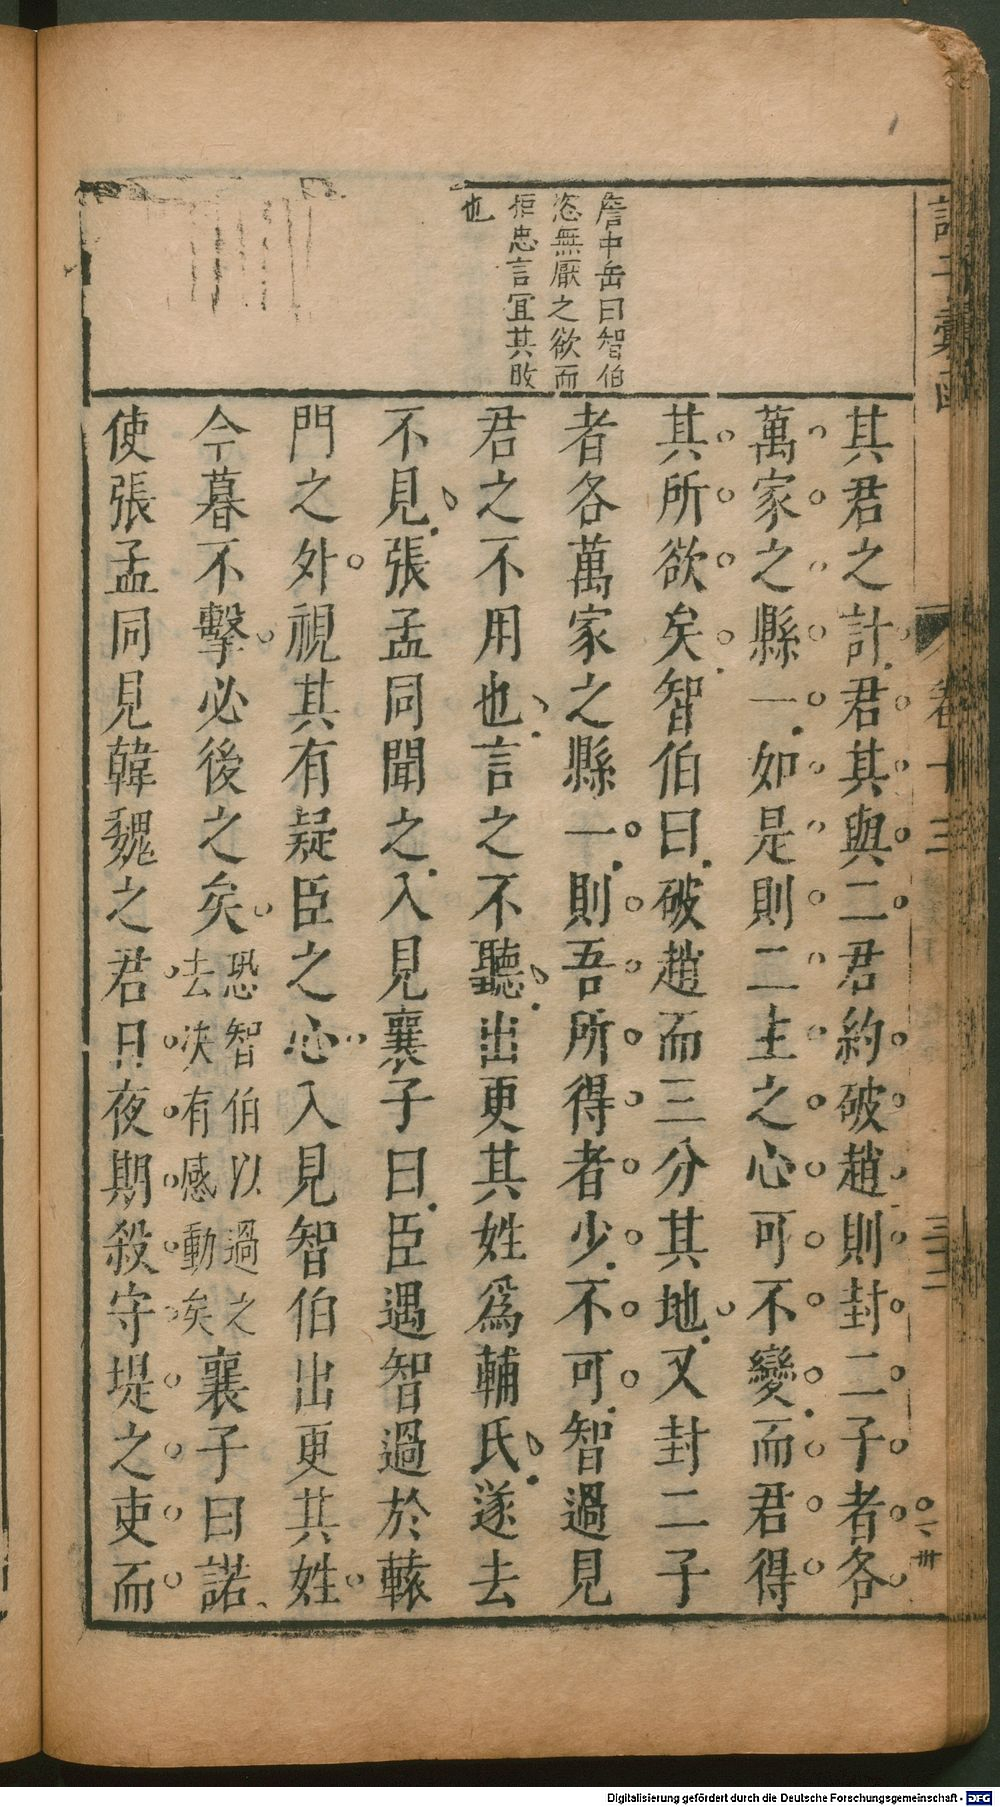 其君之計君其與二君約破趙則封二子者各
萬家之縣一如是則二主之心可不變而君得
其所欲矣智伯曰破趙而三分其地又封二子
者各萬家之縣一則吾所得者少不可智過見
君之不用也言之不聽出更其姓爲輔氏遂去
不見張孟同聞之入見襄子曰臣遇智過於轅
門之外視其有疑臣之心入見智伯出更其姓
今暮不擊必後之矣恐智伯以過之去決有感動矣襄子曰諾
使張孟同見韓魏之君日夜期殺守堤之吏而
詹中岳曰智伯
恣無厭之欲而
拒忠言冝其敗
也
卷十三
三十二
Digitalisierung gefördert durch die Deutsche Forschungsgemeinschaft - DFG